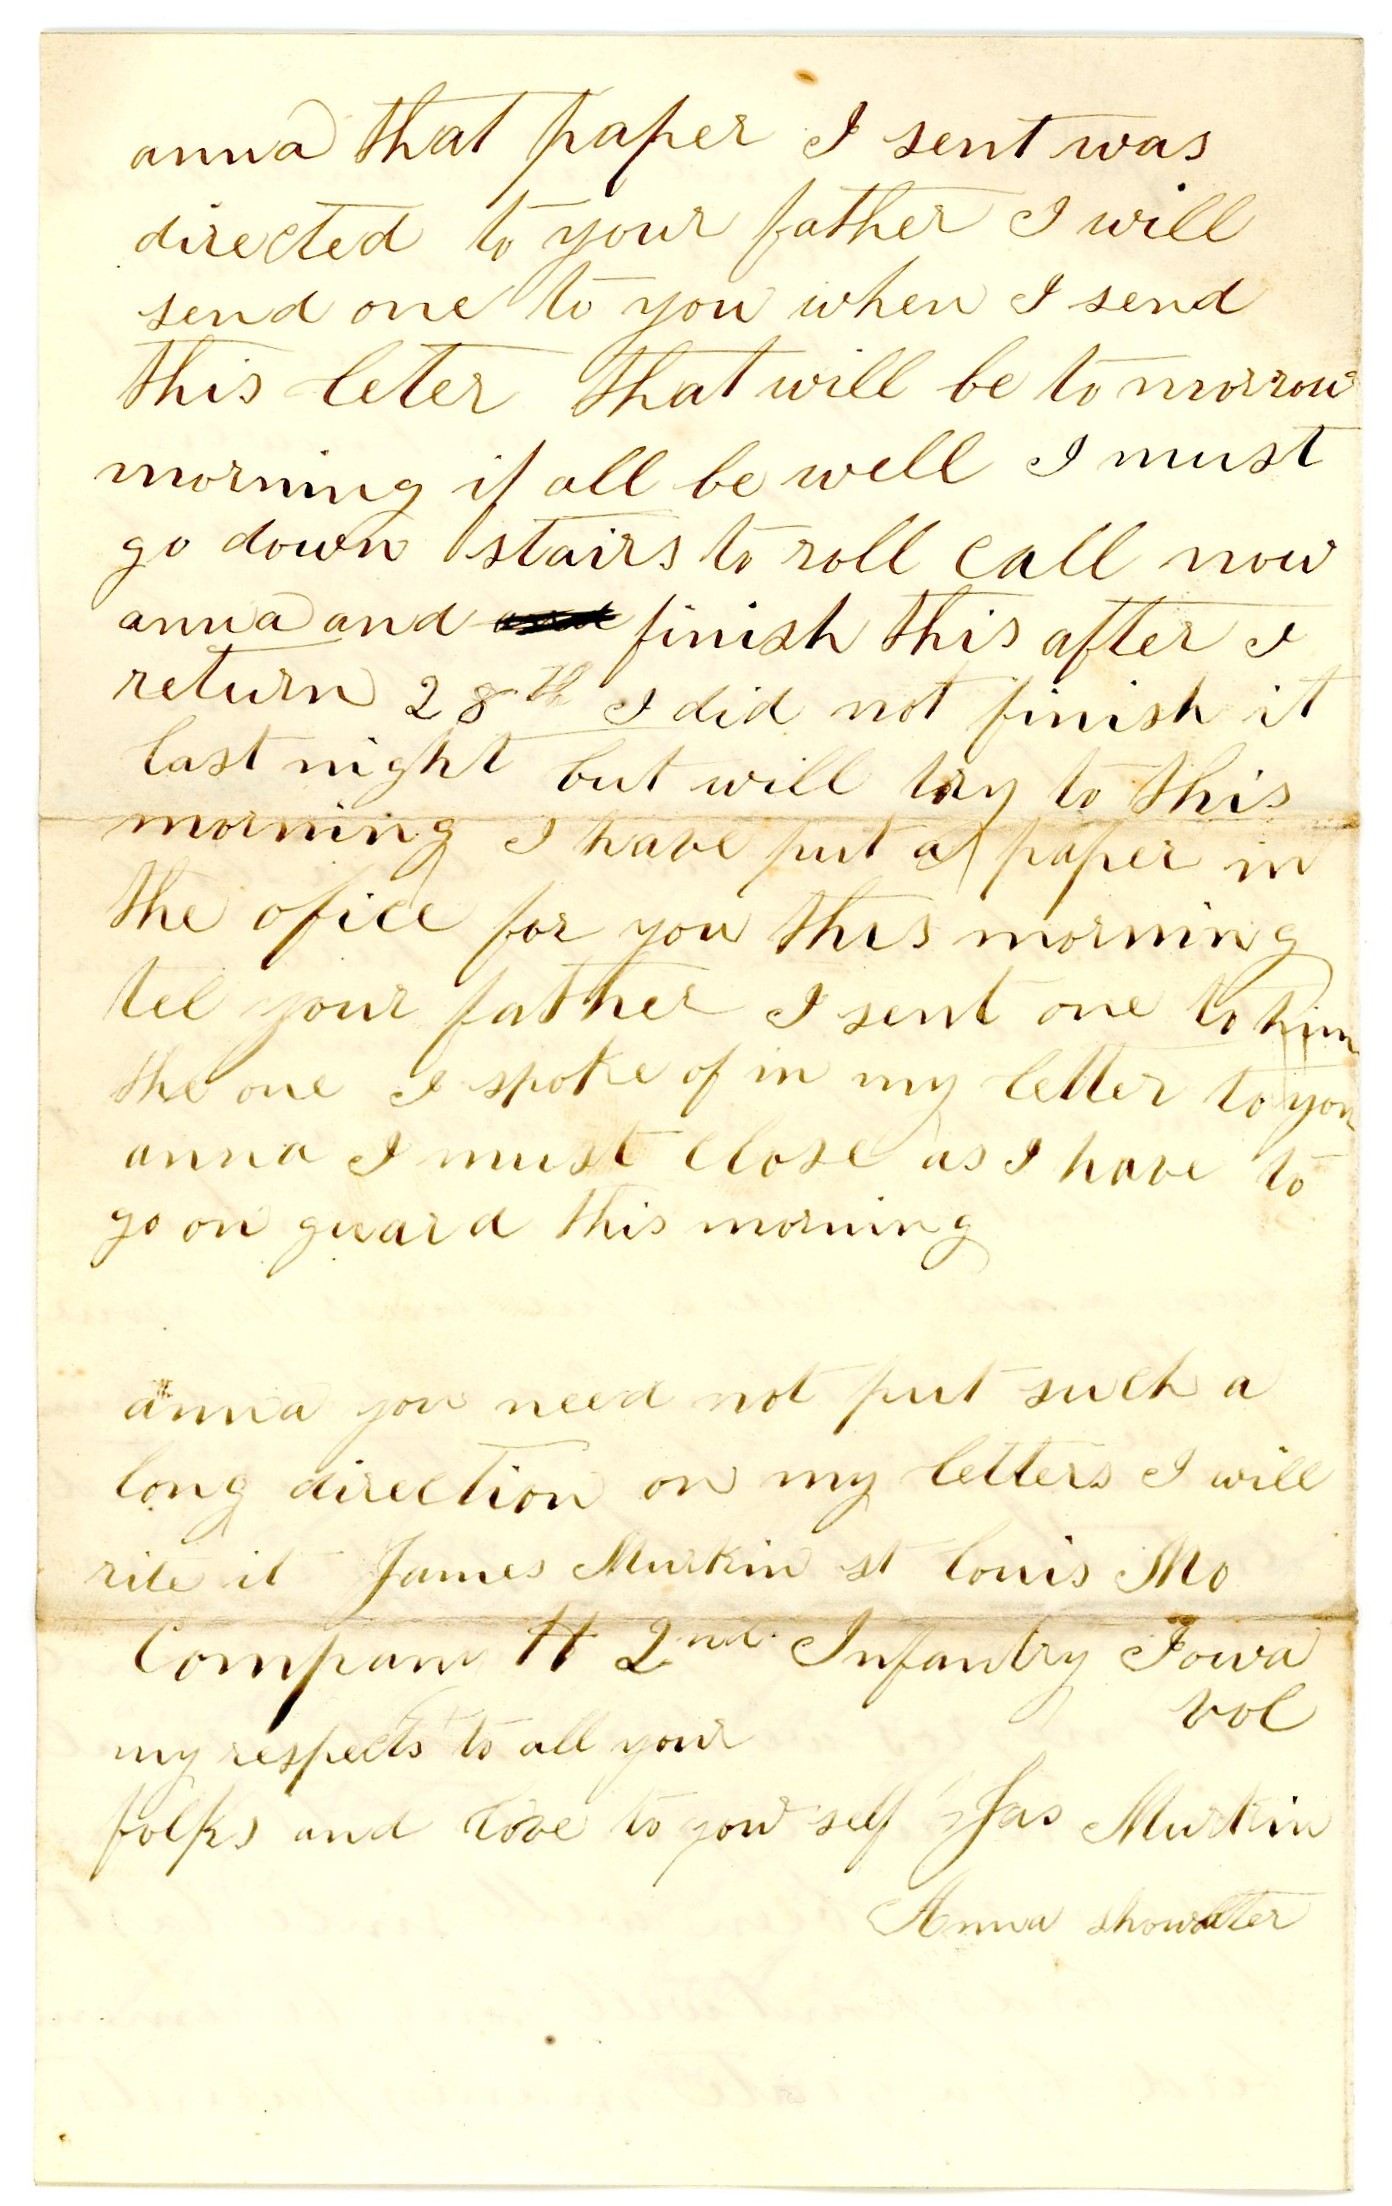 anna that paper I sent was
directed to your father I will
send one to you when I send
this leter that will be to morrow
morning if all be well I must
go down stairs to roll call now
anna and finish this after I
return 28th I did not finish it
last night but will try to this
morning I have put a paper in
the ofice for you this morning
tel your father I sent one to him
the one I spoke of in my letter to you
anna I must close as I have to
go on guard this morning
anna you need not put such a
long direction on my letters I will
rite it James Murkin st louis Mo
Compam H 2nd Infantry Iowa
vol
my respects to all your
folks and love to your self Jas Murkin
Anna showalter